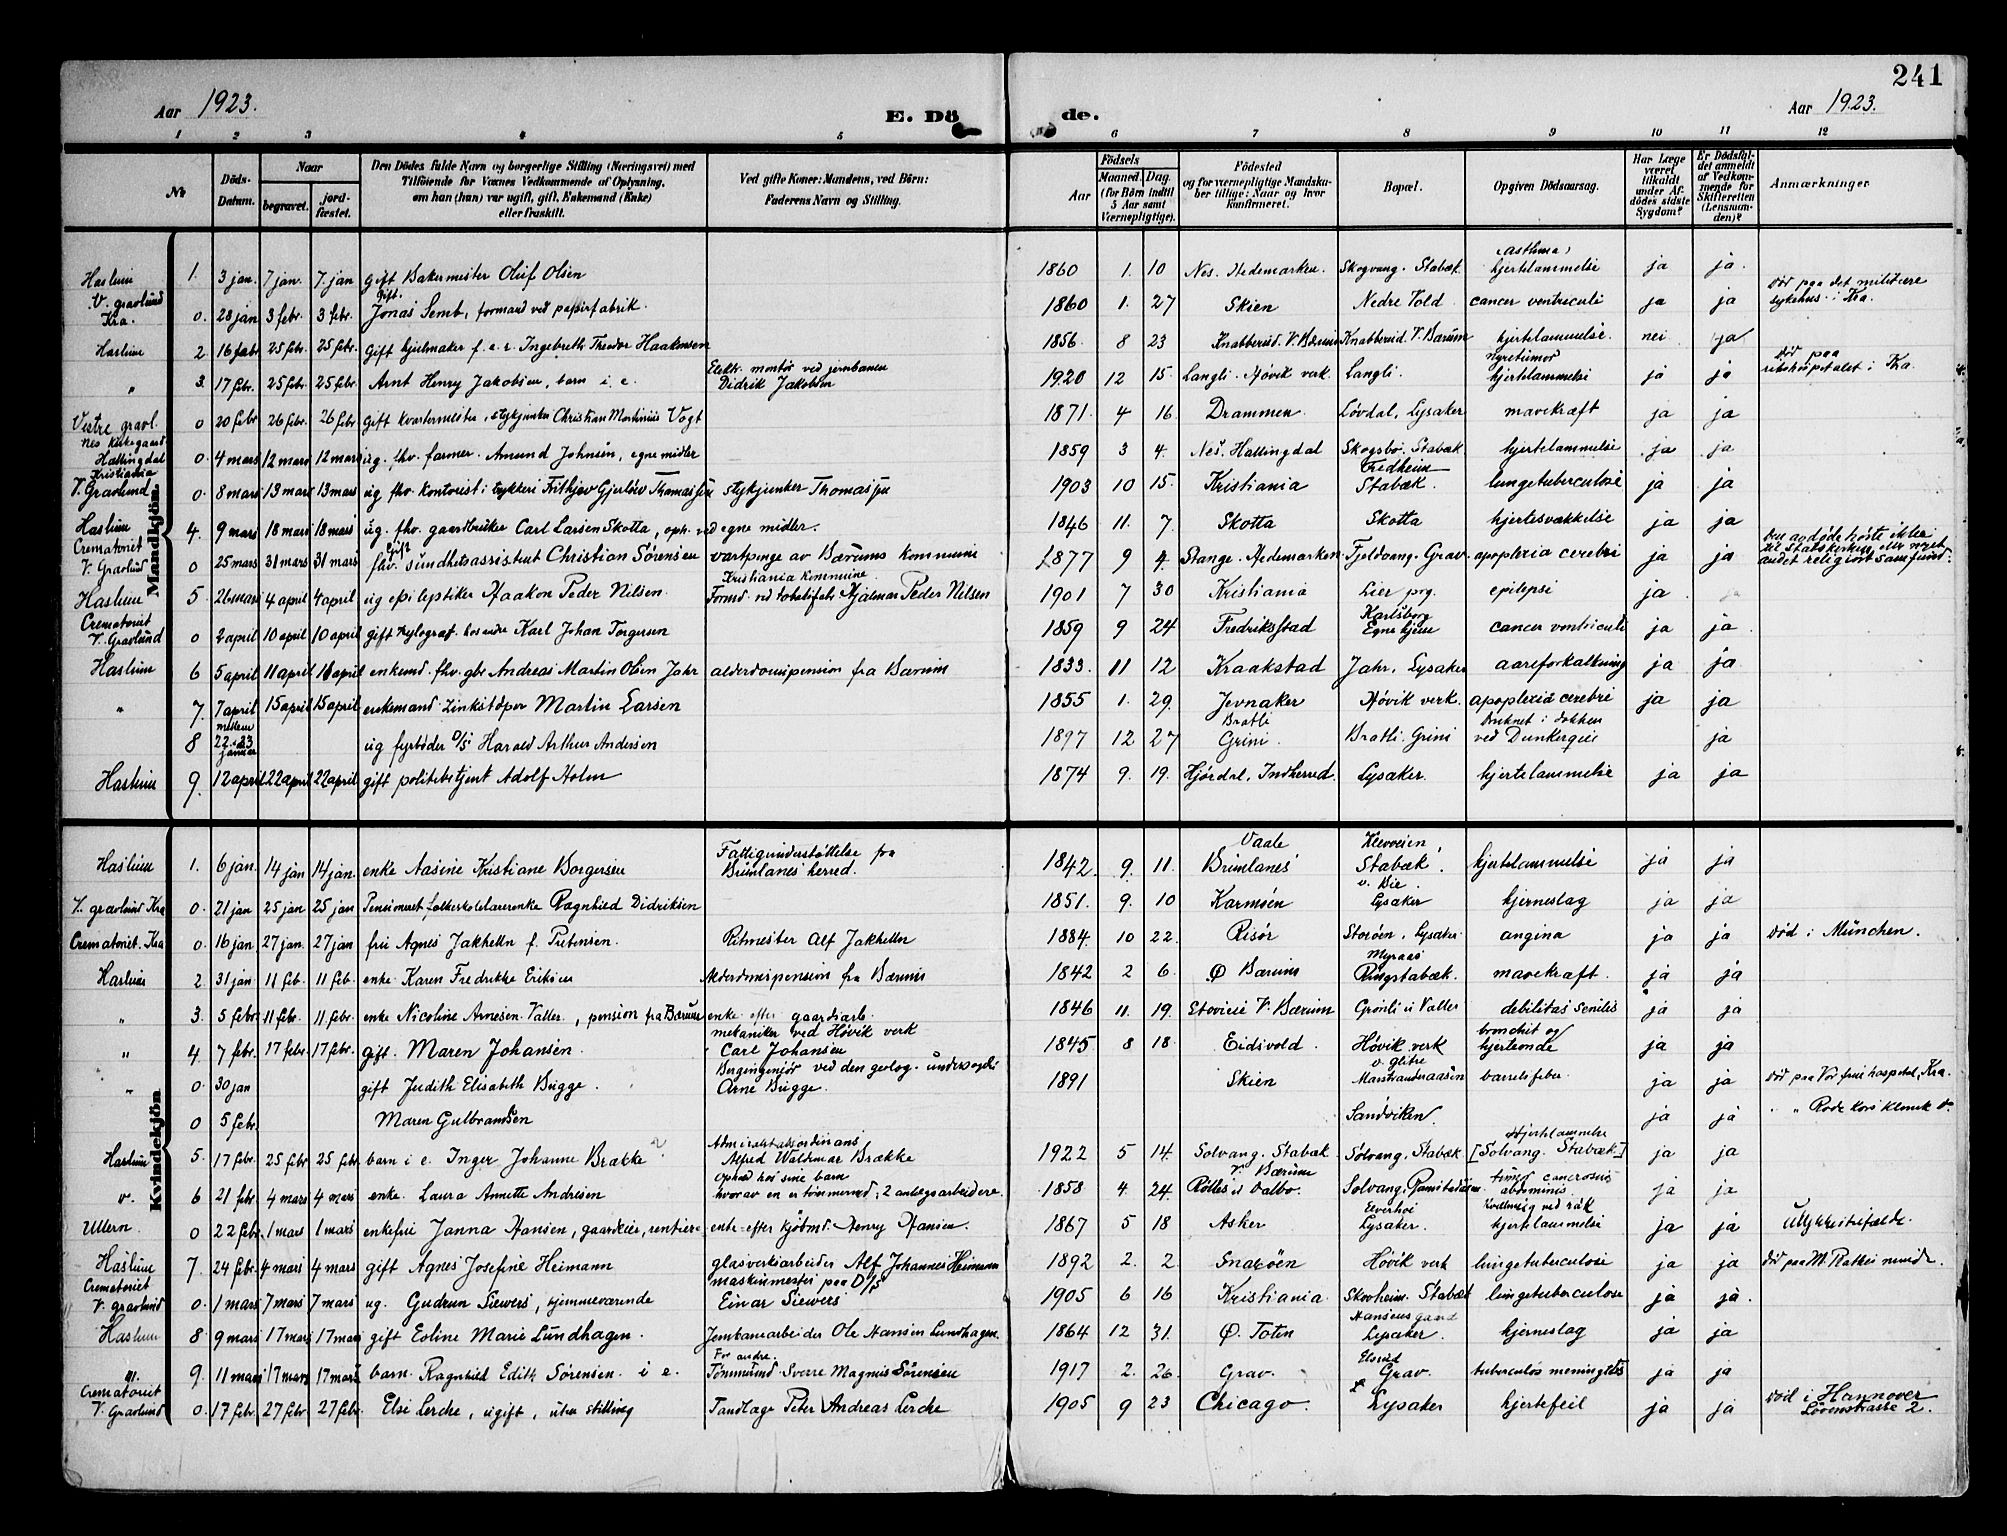 241
Aar 1923. E. Dö de. Aar 1923.
1 2 3 4 5 6 7 8 9 10 11 12
No Döds-Datum. Naar begravet. jord-fæstet. Den Dödes fulde Navn og borgerlige Stilling (Næringsvei) med Tilföiende for Voxnes Vedkommende af Oplysning, om han (hun) var ugift, gift, Enkemand (Enke) eller fraskilt. Ved gifte Koner: Mandens, ved Börn: Faderens Navn og Stilling. Födsels Aar Maaned. Dag. (for Börn indtil 5 Aar samt Værnepligtige). Födested og for værnepligtige Mandskaber tillige: Naar og hvor konfirmeret. Bopæl. Opgiven Dödsaarsag. Har Læge været tilkaldt under Afdödes sidste Sygdom? Er Dödsfaldet anmeldt af Vedkommende for Skifteretten (Lensmanden)? Anmærkninger
Mandkjön.
Haslum 1. 3 jan. 7 jan. 7. jan gift Bakermester Oluf Olsen 1860 1. 10 Nes. Hedemarken. Skogvang. Stabæk. asthma, hjertelammelse ja ja.
V. gravlund Kra. 0. 28 jan 3 febr. 3 febr. gift. Jonas Semb, formand ved papirfabrik. 1860 1. 27 Skien Nedre Vold cancer ventriculi ja ja Död paa det militære sykehus i Kra.
Haslum 2 16 febr 25 febr. 25 febr. gift hjulmaker f.e.s. Ingebreth Theodor Haakonsen 1856. 8 23 Knabberud. V. Bærum Knabberud. V. Bærum hjertelammelse. nei ja
" 3. 17 febr. 25 febr. 25 febr. Arnt Henry Jakobsen, barn i. e. Elektr. montör ved jernbanen Didrik Jakobsen 1920 12 15. Langli. Hövik verk. Langli. nyretumor hjertelammelse ja ja död paa rikshospitalet i Kra.
Vestre gravl. 0 20 febr 26 febr. 26 febr. gift kvartermester, stykjunker Christian Martinius Vogt 1871. 4 16. Drammen. Lövdal, Lysaker mavekræft ja ja
Nes kirkegaard Hallingdal 0. 4 mars 12 mars 12 mars ug. fhv. farmer. Amund Johnsen, egne midler 1859 3 4. Nes. Hallingdal Skogsbo. Stabæk hjertelammelse ja ja
Kristiania V. Gravlund 0. 8 mars 13 mars 13 mars ug fhv. kontorist i trykkeri Frithjov Gjerlöv Thomassen stykjunker Thomassen 1903 10 15. Kristiania Fredheim Stabæk. lungetuberculose ja ja
Haslum 4. 9 mars 18 mars 18 mars ug. fhv. gaardbruker Carl Larsen Skotta, oph. ved egne midler. 1846 11. 7. Skotta Skotta hjertesvækkelse ja ja
Crematoriet V. Gravlund 0 25 mars 31 mars 31 mars gift fhv. sundhetsassistent Christian Sörensen vartpenge av Bærums kommune 1877 9 4. Stange. Hedemarken Fjeldvang. Grav. apoplexia cerebri ja ja Den avdöde hörte ikke til Statskirken eller noget andet religiöst samfund.
Haslum 5 26 mars 4 april 4 april ug epileptiker Haakon Peder Nilsen. Kristiania kommune Hjalmar Peder Nilsen 1901 7 30 Kristiania Lier prg. epilepsi ja
Crematoriet V. Gravlund 0 2 april 10 april 10 april gift xylograf. hos andre Karl Johan Torgersen 1859 9 24 Fredriksstad Karlsborg Egne hjem cancer ventriculi ja ja
Haslum 6 5 april 11 april 11 april enkemd. fhv. gbr. Andreas Martin Olsen Jahr alderdomspension fra Bærum 1833. 11 12 Kraakstad Jahr, Lysaker aareforkalkning ja ja
" 7. 7 april 15 april 15 april enkemand. Zinkstöper Martin Larsen 1855 1. 29. Jevnaker Hövik verk. apoplexia cerebri ja ja
8 mellem 22 23 januar ug fyrböder D/S Harald Arthur Andersen 1897 12 27 Bratli Grini. Bratli. Grini druknet i dokken ved Dunkerque ja
Haslum 9. 12 april 22 april 22 april gift politibetjent Adolf Holm 1874 9. 19. Hjördal, Indherred. Lysaker. hjertelammelse ja ja
Kvindekjön
Haslum 1. 6 jan. 14 jan 14 jan. enke Aasine Kristiane Borgersen Fattigunderstöttelse fra Brunlanes herred. 1842. 9. 11. Vaale Brunlanes Kleveien Stabæk. hjertelammelse ja ja
V. gravlund Kra 0. 21 jan 25 jan 25 jan Pensioneret folkeskolelærerenke Ragnhild Didriksen 1851. 9. 10 Karmöen v. Bie. Lysaker hjerneslag ja ja
Crematoriet. Kra 0. 16 jan 27 jan. 27 jan frue Agnes Jakhelln f. Ritmester Alf Jakhelln 1884. 10 22. Risör Storöen, Lysaker. angina ja ja Död i München.
Haslum 2 31 jan 11 feb. 11 feb. enke Karen Fredrikke Eriksen Alderdomspension fra Bærum 1842 2 6. Ø. Bærum Myraas Ringstabæk. mavekræft. ja ja
" 3. 5 febr 11 febr. 11 febr. enke Nicoline Arnesen. Valler, pension fra Bærum enke efter gaardarb. 1846 11. 19. Stovivie V. Bærum Grönli u Valler debilitas senilis ja ja
" 4 7 febr. 17 febr. 17 febr. gift. Maren Johansen. mekaniker ved Hövik verk Carl Johansen 1845 8 18. Eidsvold. Hövik verk bronchit og hjerteonde ja ja
" 0. 30 jan gift Judith Elisabeth Bugge. Bergingeniör ved den geolog. undersögelse Arne Bugge. 1891 Skien v. Glitre Marstranderaasen barselfeber ja ja död paa Vor frue hospital, Kra.
0 5 febr. Maren Gulbrandsen Sandviken. ja ja " Röde kors klinik
Haslum 5. 17 febr. 25 febr 25 febr. barn i e. Inger Johanne Brække Alfred Waldemar Brække 1922 5 14. Solvang. Stabæk Solvang. Stabæk hjertelammelse [Solvang. Stabæk] ja ja
6 21 febr. 4 mars 4 mars enke. Laura Annette Andersen ophold hos sine barn hvorav en er tömmermd, 2 anlegsarbeidere. 1858 4. 24. V. Bærum Dalbo. Solvang. tumor cancrosus abdominis ja ja
Ullern. 0 22 febr. 1 mars 1 mars enkefrue Janna Hansen, gaardeier, rentier enke efter kjöbmd. Henry Hansen. 1867 5 18 Asker Lysaker. Kvælning ved rök hjertelammelse ja ja Ulykkestilfælde.
Haslum 7. 24 febr. 4 mars 4 mars gift Agnes Josefine Heimann glasverksarbeider Alf Johannes Heimann 1892 2. 2. Snaröen Hövik verk lungetuberculose ja ja Död paa M. Rathes minde.
Crematoriet V. gravlund 0. 1 mars 7 mars 7 mars ug. Gudrun Siewers, hjemmeværende maskinmester paa D/S Einar Siewers 1905 6 16 Kristiania. Skovheim. Stabæk lungetuberculose ja ja.
Haslum 8 9 mars 17 mars 17 mars gift Eoline Marie Lundhagen. Jernbanearbeider Ole Hansen Lundhagen. 1864 12 31. Ø. Toten Hansens gaard Lysaker. hjerneslag ja ja
" 9. 11 mars 17 mars 17 mars barn. Ragnhild Edith Sörensen. i e. For andre. Tömmermd. Sverre Magnus Sörensen 1917 2. 26. Grav. Grav. tuberculos meningitis ja ja
Crematoriet V. Gravlund 0. 17 febr. 27 febr 27 febr. Elsi Lerche, ugift, uten stilling Tandlæge Peter Andreas Lerche 1905 9 23 Chicago. Lysaker hjertefeil ja ja död i Hannover Lövenstrasse 2.